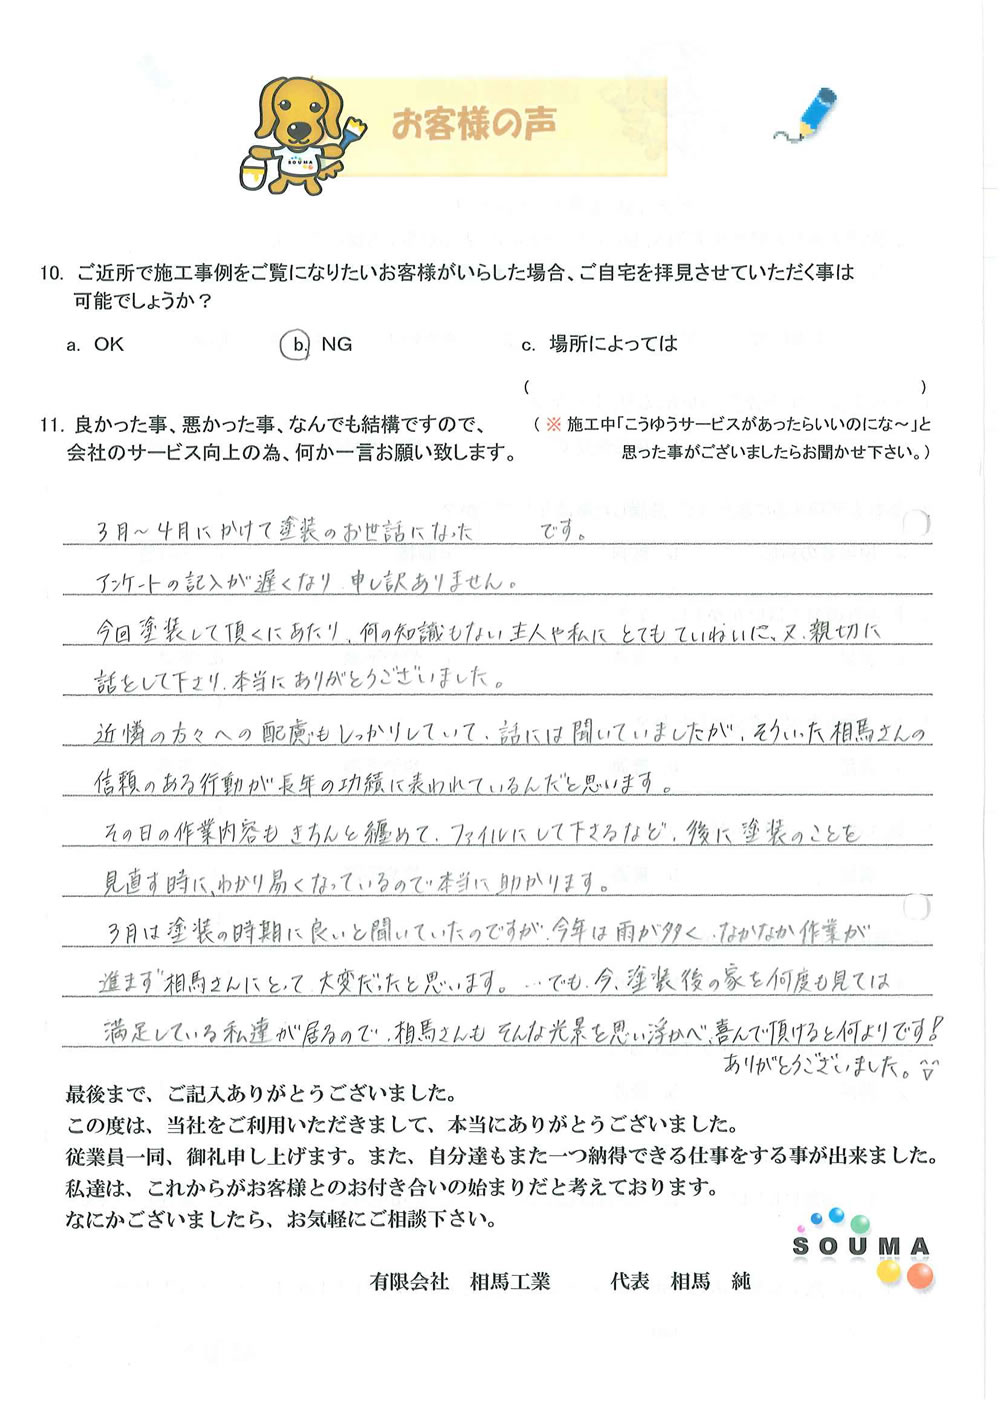 お客様の声
SOUMA
10. ご近所で施工事例をご覧になりたいお客様がいらした場合、ご自宅を拝見させていただく事は
可能でしょうか？
a. OK b. NG c. 場所によっては
( )
11. 良かった事、悪かった事、なんでも結構ですので、 (※ 施工中「こうゆうサービスがあったらいいのにな～」と
会社のサービス向上の為、何か一言お願い致します。 思った事がございましたらお聞かせ下さい。)
3月～4月にかけて塗装のお世話になった です。
アンケートの記入が遅くなり、申し訳ありません。
今回塗装して頂くにあたり、何の知識もない主人や私に とてもていねいに、又、親切に
話をして下さり、本当にありがとうございました。
近憐の方々への配慮もしっかりしていて、話には聞いていましたが、そういった相馬さんの
信頼のある行動が長年の功績に表われているんだと思います。
その日の作業内容も きちんと纏めて、ファイルにして下さるなど、後に塗装のことを
見直す時に、わかり易くなっているので本当に助かります。
3月は塗装の時期に良いと聞いていたのですが、今年は雨が多く、なかなか作業が
進まず相馬さんにとって大変だったと思います。…でも、今、塗装後の家を何度も見ては
満足している私達が居るので、相馬さんも そんな光景を思い浮かべ、喜んで頂けると何よりです!
ありがとうございました。^▽^
最後まで、ご記入ありがとうございました。
この度は、当社をご利用いただきまして、本当にありがとうございました。
従業員一同、御礼申し上げます。また、自分達もまた一つ納得できる仕事をする事が出来ました。
私達は、これからがお客様とのお付き合いの始まりだと考えております。
なにかございましたら、お気軽にご相談下さい。
SOUMA
有限会社 相馬工業 代表 相馬 純